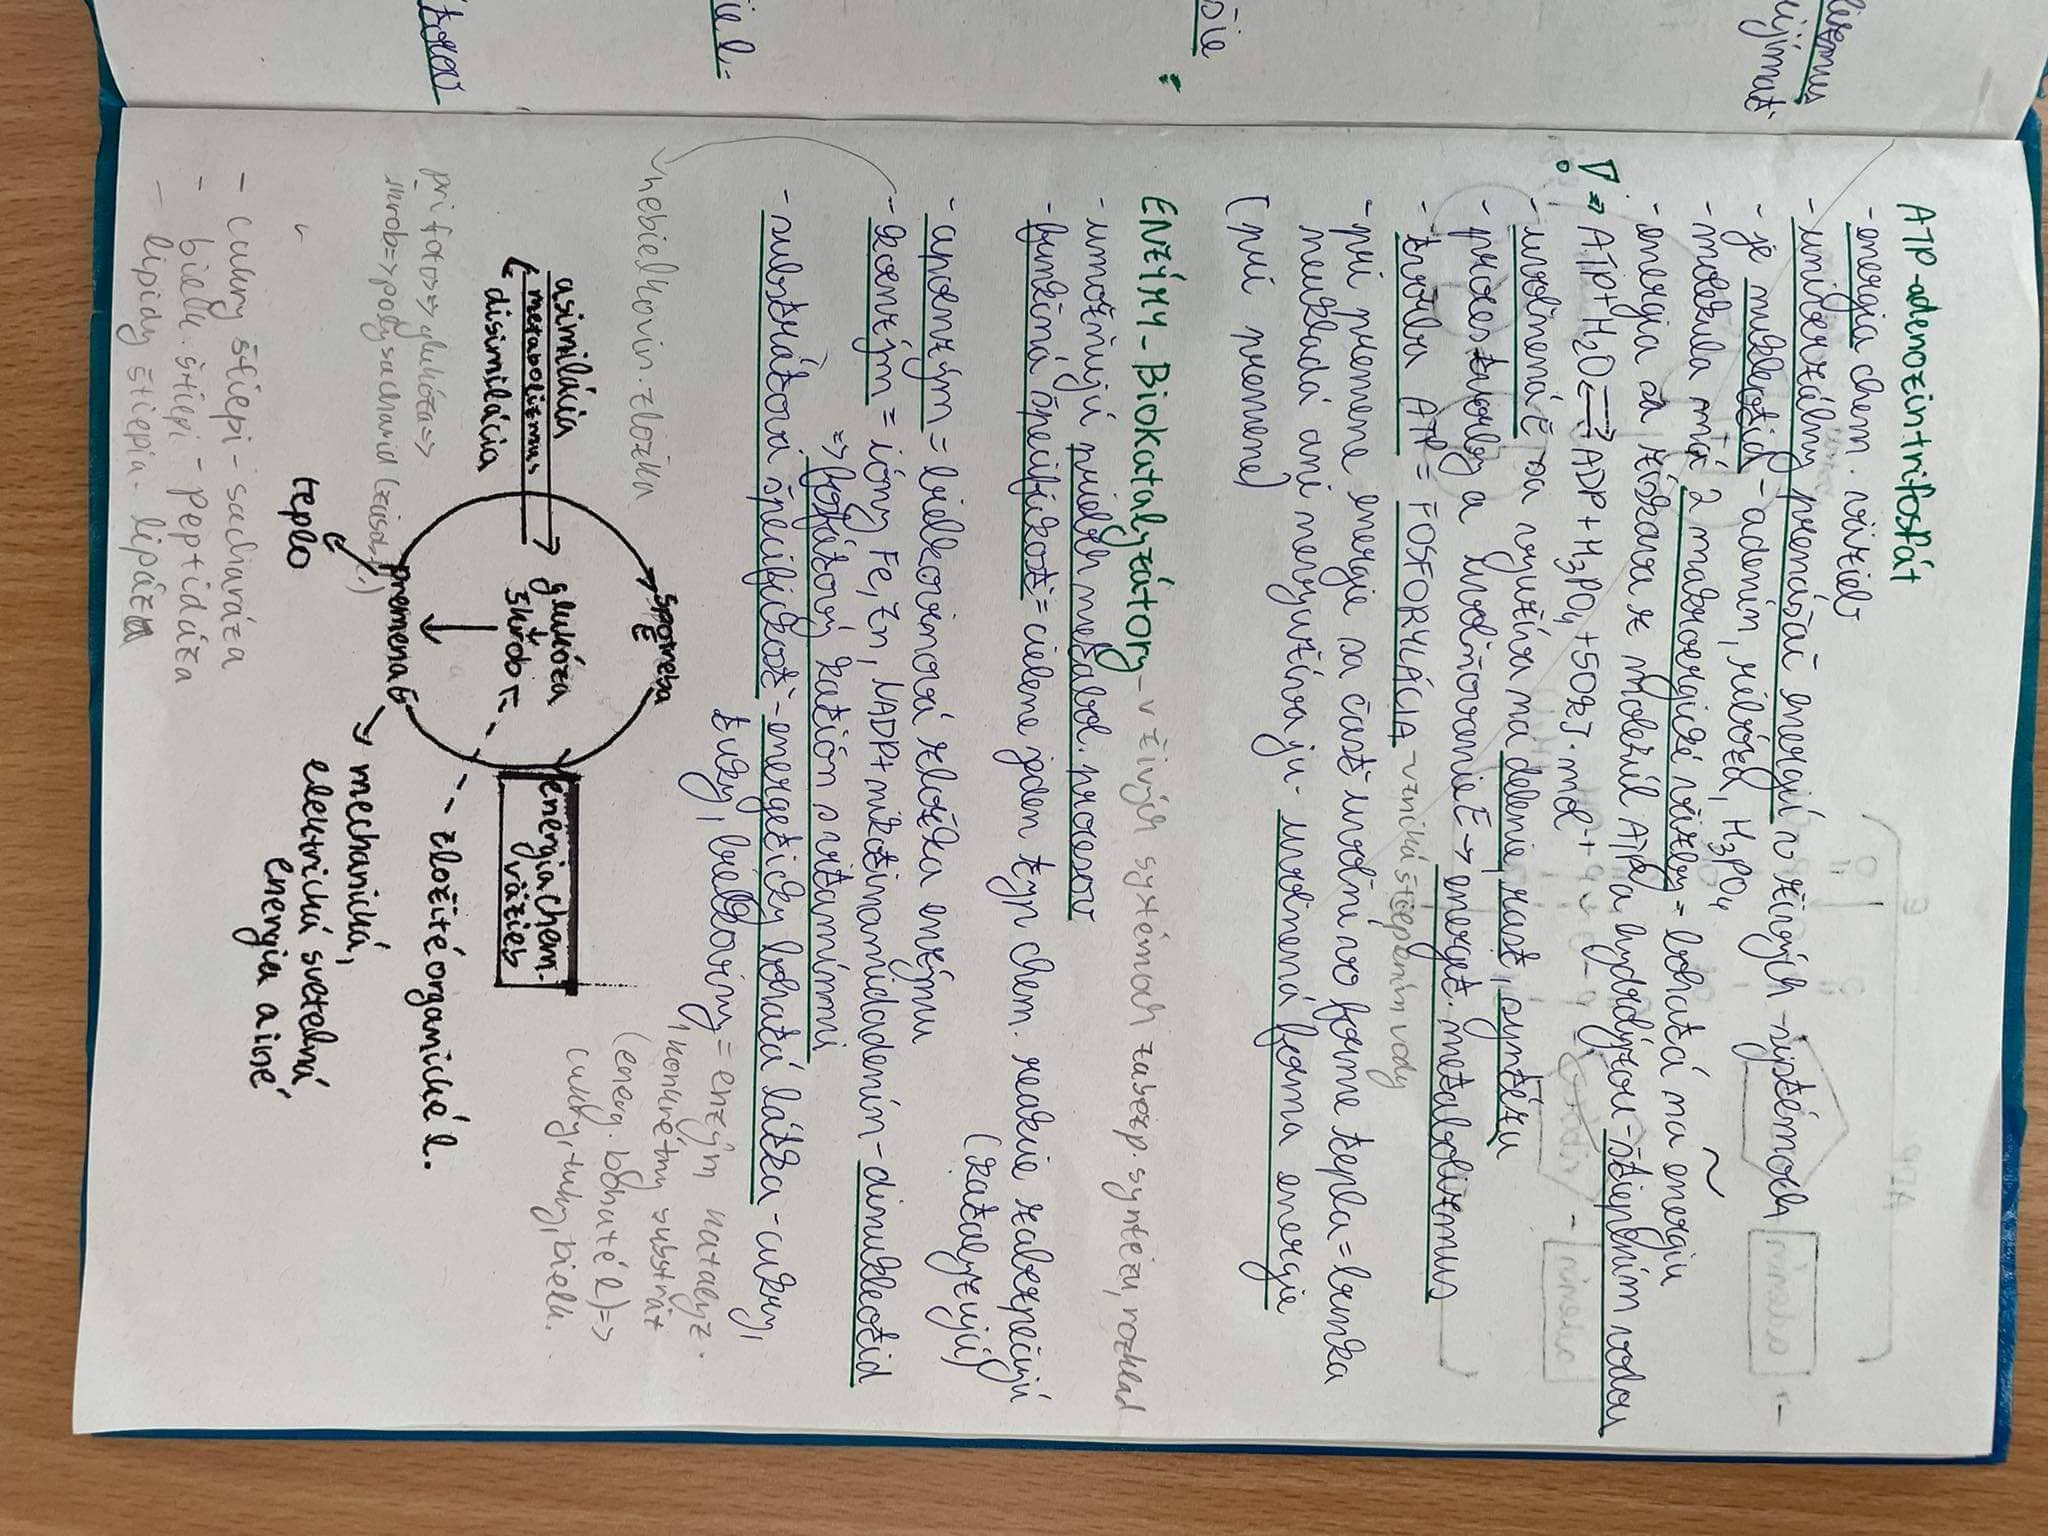 ATP-adenozintrifosfát
- energia chem. väzieb
- univerzálny prenášač energií v živých systémoch
- je nukleotid - adenín, ribóza, H3PO4
- molekula má 2 makroergické väzby = bohatá na energiu
- energia sa získava z molekúl ATP a hydrolýzou - štiepením vodou
! => ATP + H2O ⇌ ADP + H3PO4 + 50kJ.mol
- uvoľnená E sa využíva na delenie, rast, syntézu
- proces tvorby a uvoľňovanie E → energet. metabolizmus
- tvorba ATP = FOSFORYLÁCIA - vzniká štiepením vody
- pri premene energie sa časť uvoľní vo forme tepla = bunka
neukladá ani nevyužíva ju - uvoľnená forma energie
(pri premene)
ENZÝMY - Biokatalyzátory - v živých systémoch zabezp. syntézu, rozklad
- umožňujú priebeh metabol. procesov
- funkčná špecifickosť = cielene jeden typ chem. reakcie zabezpečujú
(katalyzujú)
- apoenzým = bielkovinová zložka enzýmu
- koenzým = ióny Fe, Zn, NADP+ nikotínamidadenín - dinukleotid
=> fosfátový katión s vitamínmi
- substrátová špecifickosť - energeticky bohatá látka - cukry,
tuky, bielkoviny = enzým katalyz.
konkrétny substrát
(energ. bohaté l) =>
cukry, tuky, bielk.
nebielkovin. zložka
asimilácia
metabolizmus
disimilácia
spotreba
E
glukóza
škrob
energia chem.
väzieb
premena
teplo
zložité organické l.
mechanická,
elektrická svetelná
energia a iné
pri fotos => glukóza =>
škrob => polysacharid (zásob.)
- cukry štiepi - sacharáza
- bielk. štiepi - peptidáza
- lipidy štiepia - lipáza